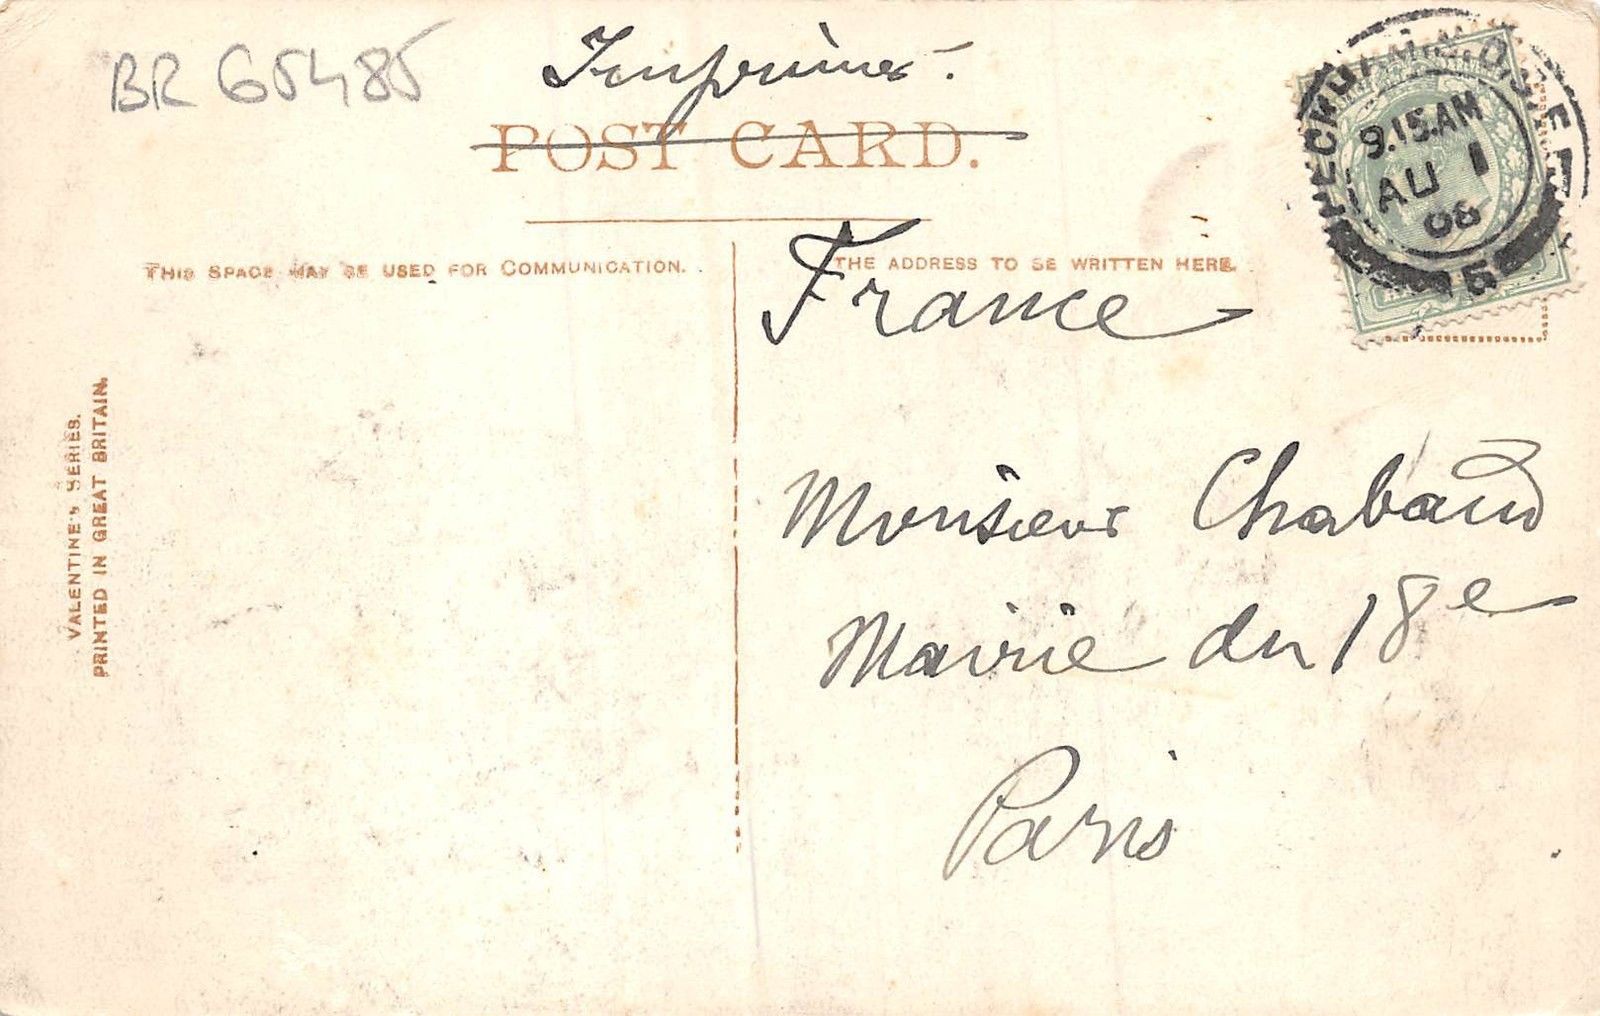 BR 65485
Imprimés.
POST CARD.
THIS SPACE MAY BE USED FOR COMMUNICATION.
THE ADDRESS TO BE WRITTEN HERE.
France
Monsieur Chabaud
Mairie du 18e
Paris
VALENTINE'S SERIES.
PRINTED IN GREAT BRITAIN.
9.15.AM
AU 1
06
15